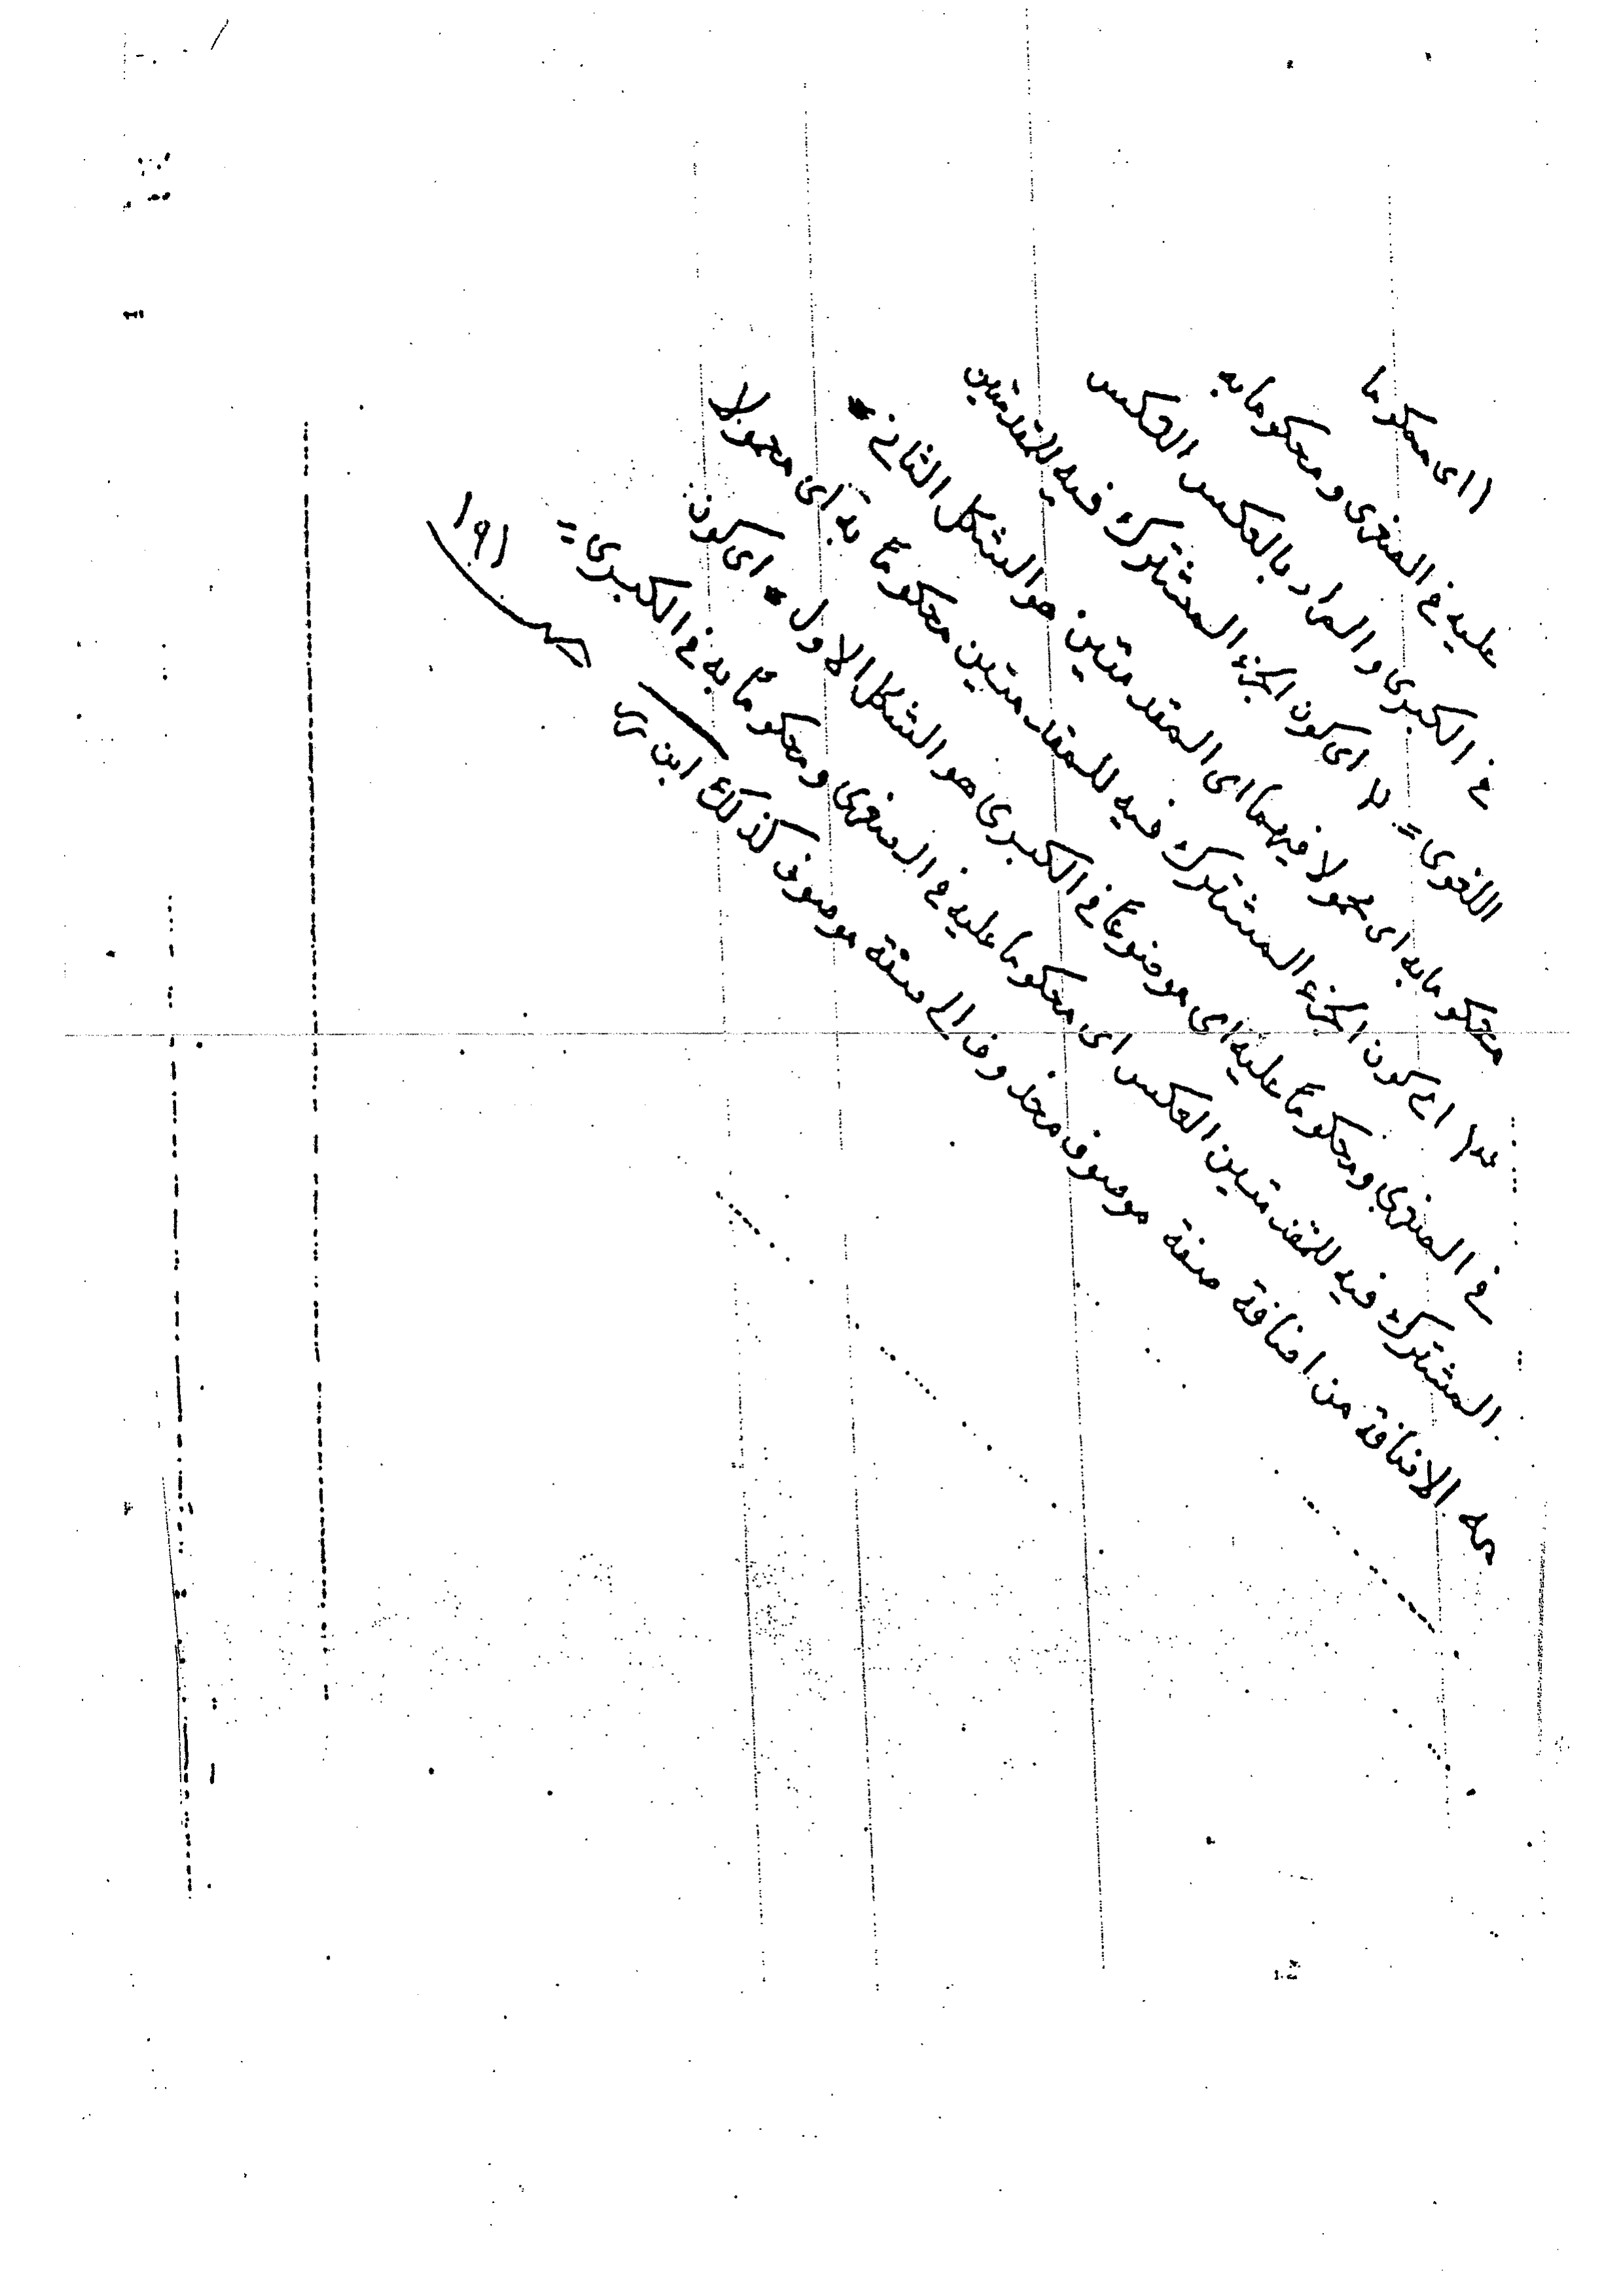 ( اى محكوما
عليه فى الصغرى ومحكوما به
فى الكبرى والمراد بالعكس العكس
اللغوى = اى كون الجزء المشترك فيه للمقدمتين
محكوما به اى محمولا فيهما اى المقدمتين هو الشكل الثانى *
اى كون الجزء المشترك فيه للمقدمتين محكوماً به اى محمولا
فى الصغرى ومحكوماً عليه اى موضوعاً فى الكبرى هو الشكل الاول * اى كون
المشترك فيه للمقدمتين العكس اى محكوما عليه فى الصغرى ومحكوماً به فى الكبرى =
الاضافة من اضافة صفة موصوف محذوف الى صفة موصوف كذلك ابن
١٩١